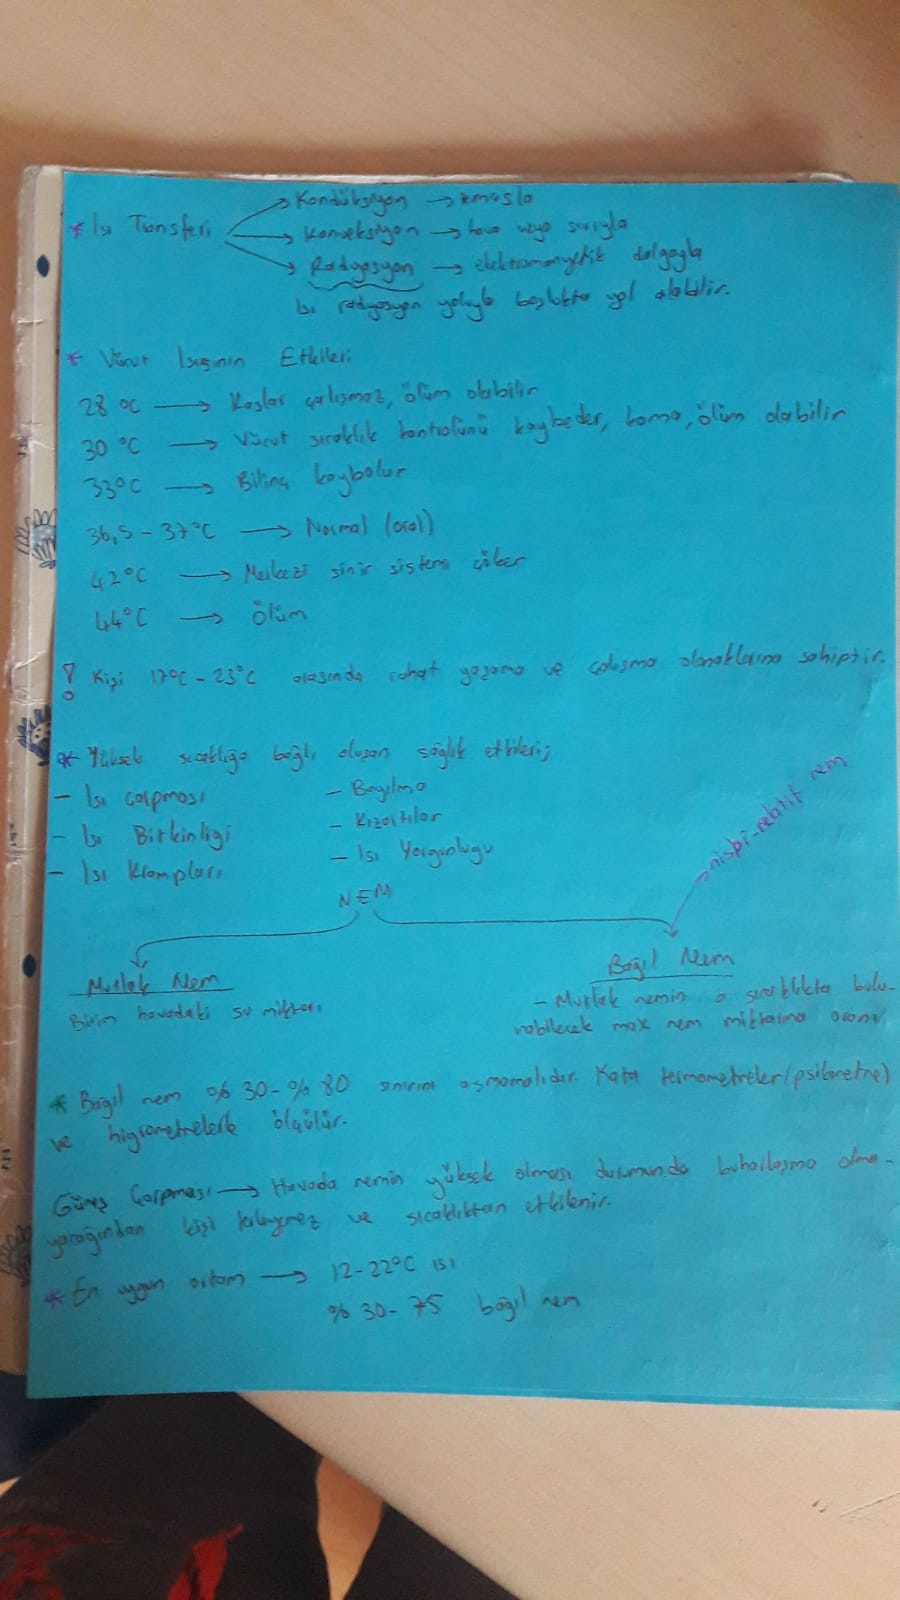 * Isı Transferi → Kondüksiyon → temasla
→ Konveksiyon → hava veya sıvıyla
→ Radyasyon → elektromanyetik dalgayla
Isı radyasyon yoluyla boşlukta yol alabilir.
* Vücut Isısının Etkileri
28 °C → Kaslar çalışmaz, ölüm olabilir
30 °C → Vücut sıcaklık kontrolünü kaybeder, koma, ölüm olabilir
33°C → Bilinç kaybolur
36,5 - 37°C → Normal (oral)
42°C → Merkezi sinir sistemi çöker
44°C → Ölüm
! Kişi 17°C - 23°C arasında rahat yaşama ve çalışma olanaklarına sahiptir.
* Yüksek sıcaklığa bağlı oluşan sağlık etkileri;
- Isı Çarpması - Bayılma
- Isı Bitkinliği - Kızartılar
- Isı Krampları - Isı Yorgunluğu
NEM
nispi-relatif nem
Mutlak Nem Bağıl Nem
Birim havadaki su miktarı - Mutlak nemin o sıcaklıkta bulu-
nabilecek max nem miktarına oranı
* Bağıl nem % 30 - % 80 sınırını aşmamalıdır. Kata termometreler (psikometre)
ve higrometrelerle ölçülür.
Güneş Çarpması → Havada nemin yüksek olması durumunda buharlaşma olma-
yacağından kişi terleyemez ve sıcaklıktan etkilenir.
* En uygun ortam → 12-22°C ısı
% 30 - 75 bağıl nem